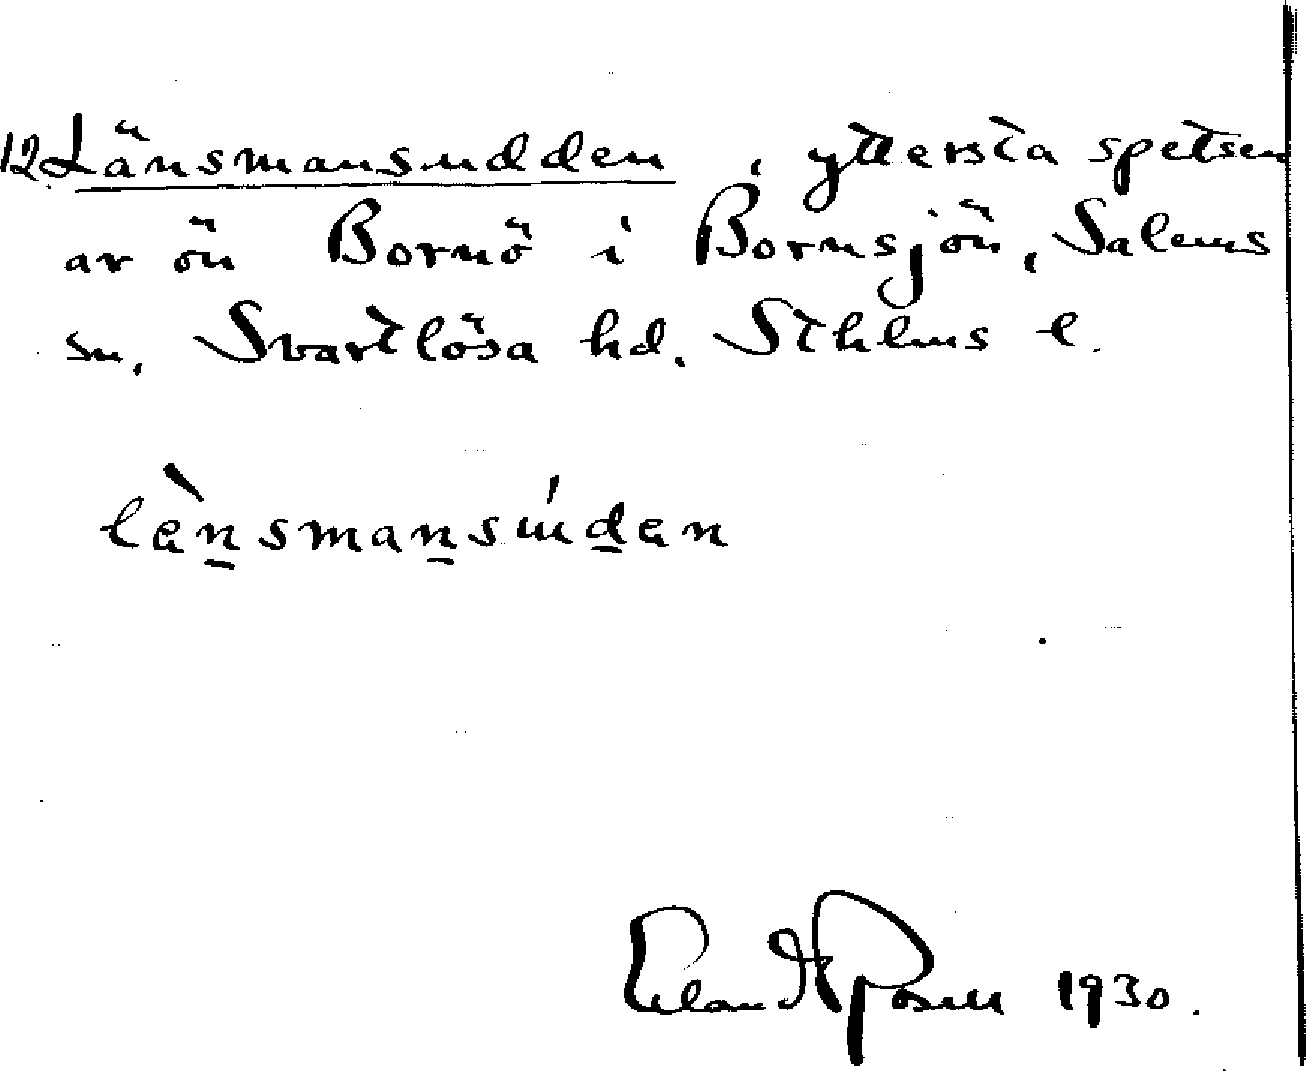 12. Länsmansudden, yttersta spetsen
av ön Bornö i Bornsjön, Salems
sn, Svartlösa hd. Sthlms l.
lènsmansúdən
Erland Rosell 1930.